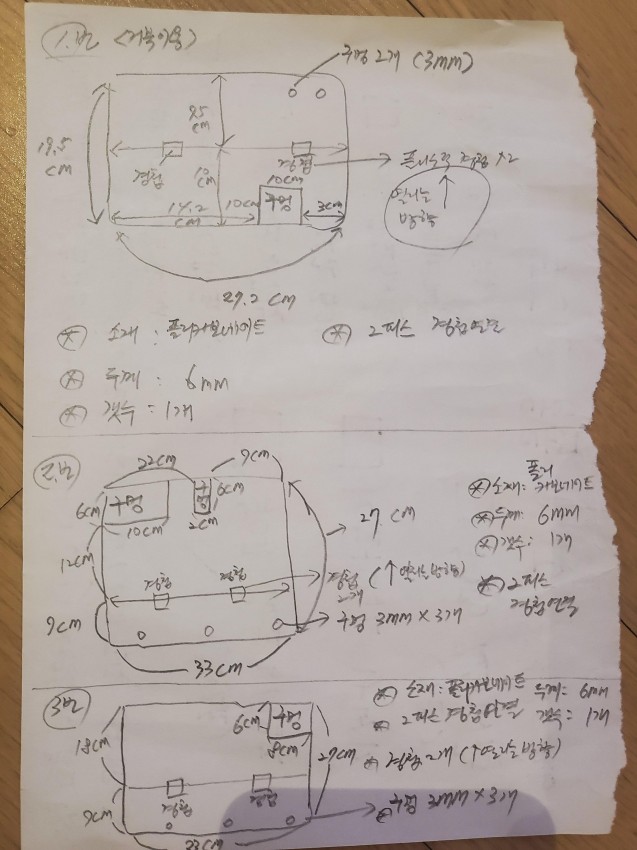 1.번 (거북이용)
구멍 2개 (3mm)
9.5
cm
19.5
cm
경첩
10
cm
경첩
10cm
구멍
10cm
14.2
cm
3cm
경첩 x2
열리는
방향
27.2 cm
소재 : 폴리카보네이트
2피스 경첩연결
두께 : 6mm
갯수 : 1개
2.번
22cm
9cm
6cm
구멍
구멍
6cm
10cm
2cm
27 cm
12cm
경첩
경첩
경첩
2개
(↑열리는방향)
9cm
구멍 3mm x 3개
33cm
소재: 폴리
카보네이트
두께: 6mm
갯수: 1개
2피스
경첩연결
3번
6cm
구멍
8cm
18cm
27cm
경첩
경첩
9cm
33cm
소재: 폴리카보네이트
두께: 6mm
2피스 경첩연결
갯수: 1개
경첩 2개 (↑열리는방향)
구멍 3mm x 3개